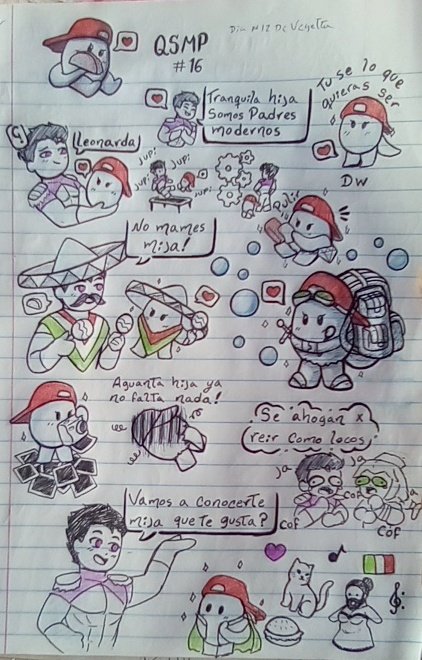 QSMP
#16
Dia #12 De Vegetta
Tu se lo que
quieras ser
Tranquila hija
Somos Padres
modernos
Leonarda
DW
jupi
jupi
jupi
jupi
Pulir
No mames
mija!
Aguanta hija ya
no falta nada!
Se ahogan x
reir como locos
ja
ja
ja
cof
cof
cof
Vamos a conocerte
mija que te gusta?